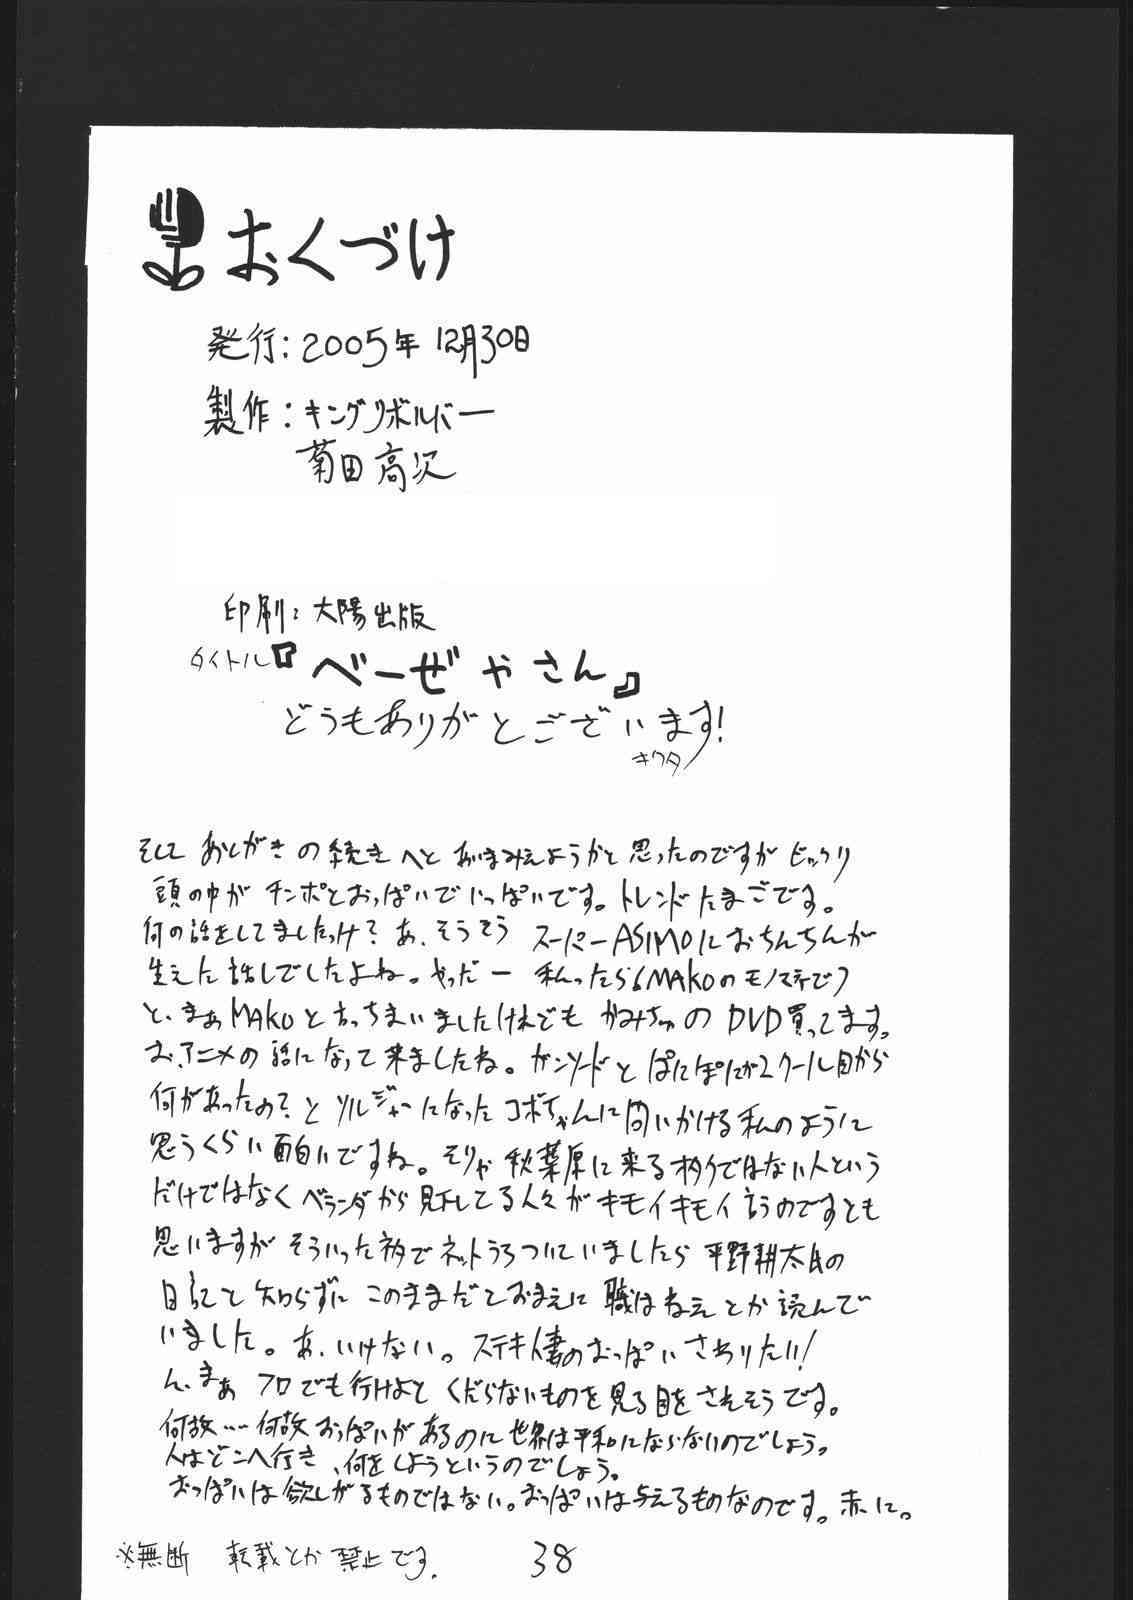 おくづけ
発行:2005年12月30日
製作:キングリボルバー
菊田高次
印刷:大陽出版
タイトル『べーぜやさん』
どうもありがとございます!
キクタ
そして あとがきの続きへと あいまみえようかと思ったのですが ビックリ
頭の中が チンポとおっぱいでいっぱいです。トレンドたまごです。
何の話をしてましたっけ? あ、そうそう スーパーASIMOにおちんちんが
生えた話しでしたよね。やっだー 私ったら(MAKOのモノマネで)
と、まぁMAKOと言っちまいましたけれども かみちゅのDVD買ってます。
お、アニメの話になって来ましたね。ガンソードとぱにぽにが2クール目から
何があったの?とソルジャーになったコボちゃんに問いかける私のように
思うくらい面白いですね。そりゃ秋葉原に来るオタクではない人という
だけではなくベランダから見下してる人々がキモイキモイ言うのですとも
思いますが そういった訳でネットうろついていましたら 平野耕太氏の
日記と知らずに このままだとおまえに職はねえとか読んで
いました。あ、いけない。ステキ人妻のおっぱいさわりたい!
ん、まぁ プロでも行けよと くだらないものを見る目をされそうです。
何故…何故おっぱいがあるのに世界は平和にならないのでしょう。
人はどこへ行き、何をしようというのでしょう。
おっぱいは欲しがるものではない。おっぱいは与えるものなのです。赤に。
※無断 転載とか禁止です.
38